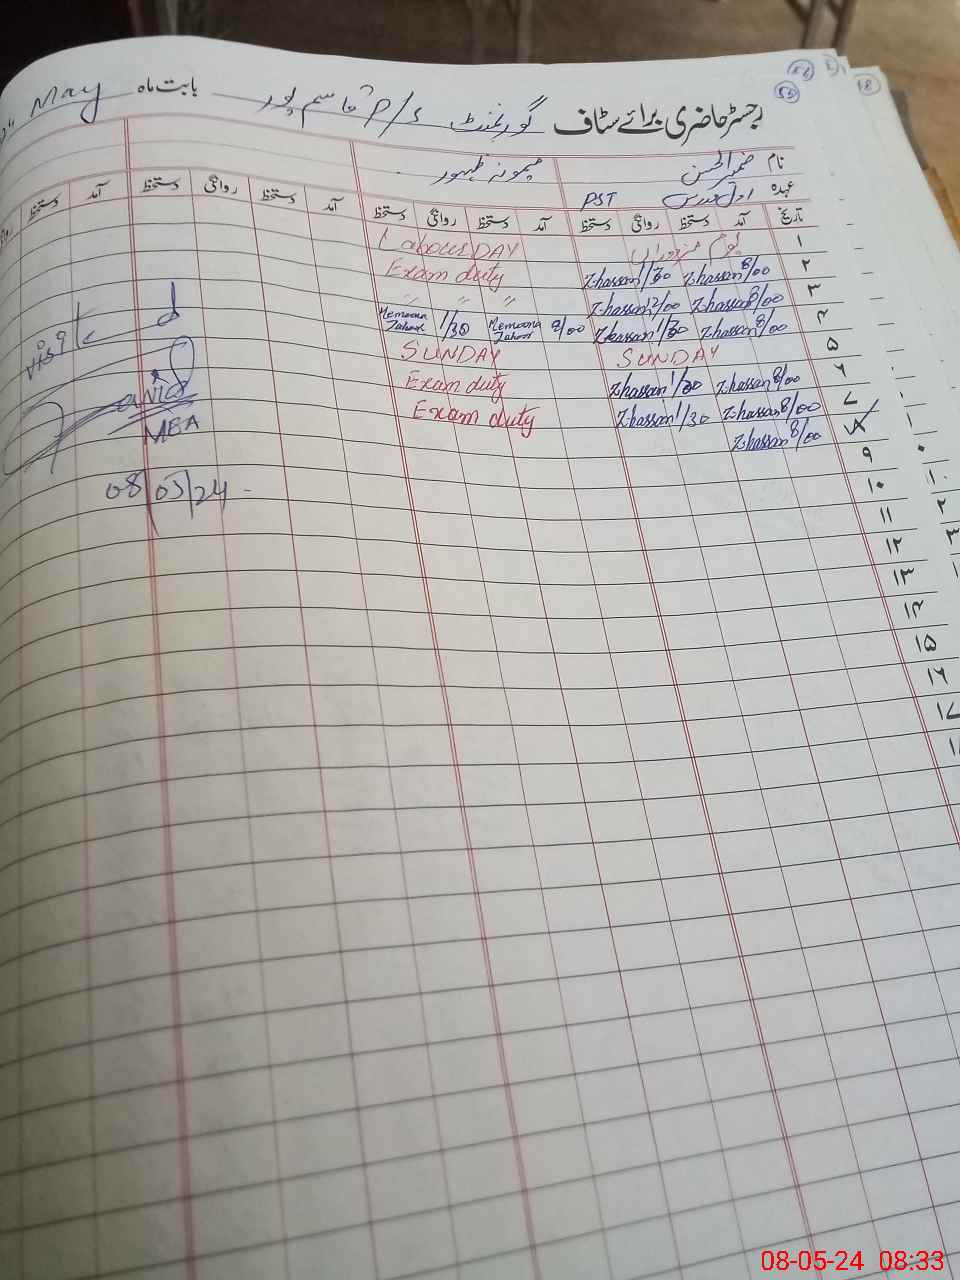 رجسٹر حاضری برائے سٹاف گورنمنٹ P/S قاسم پور بابت ماہ May
55
نام ضمیر الحسن میمونہ ظہور
عہدہ اول مدرس PST
تاریخ آمد دستخط روانگی دستخط آمد دستخط روانگی دستخط آمد دستخط روانگی دستخط آمد دستخط
۱ یوم مزدوراں Labour DAY
۲ 8/00 Z.hassan 1/30 Z.hassan Exam duty
۳ 8/00 Z.hassan 12/00 Z.hassan " " "
۴ 8/00 Z.hassan 1/30 Z.hassan 8/00 Memoona Zahoor 1/30 Memoona Zahoor
۵ SUNDAY SUNDAY
۶ 8/00 Z.hassan 1/30 Z.hassan Exam duty
۷ 8/00 Z.hassan 1/30 Z.hassan Exam duty
۸ 8/00 Z.hassan
۹
۱۰
۱۱
۱۲
۱۳
۱۴
۱۵
۱۶
۱۷
Visited
MEA
08/05/24
08-05-24 08:33